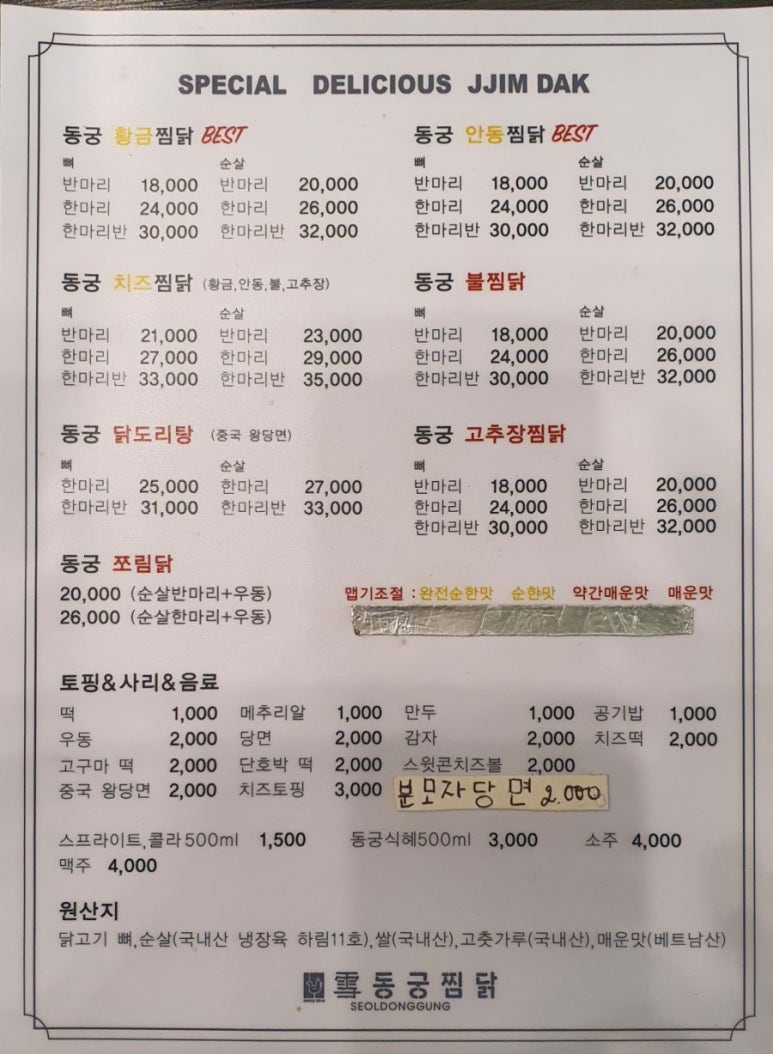 SPECIAL DELICIOUS JJIM DAK
동궁 황금찜닭 BEST
뼈 순살
반마리 18,000 반마리 20,000
한마리 24,000 한마리 26,000
한마리반 30,000 한마리반 32,000
동궁 안동찜닭 BEST
뼈 순살
반마리 18,000 반마리 20,000
한마리 24,000 한마리 26,000
한마리반 30,000 한마리반 32,000
동궁 치즈찜닭 (황금,안동,불,고추장)
뼈 순살
반마리 21,000 반마리 23,000
한마리 27,000 한마리 29,000
한마리반 33,000 한마리반 35,000
동궁 불찜닭
뼈 순살
반마리 18,000 반마리 20,000
한마리 24,000 한마리 26,000
한마리반 30,000 한마리반 32,000
동궁 닭도리탕 (중국 왕당면)
뼈 순살
한마리 25,000 한마리 27,000
한마리반 31,000 한마리반 33,000
동궁 고추장찜닭
뼈 순살
반마리 18,000 반마리 20,000
한마리 24,000 한마리 26,000
한마리반 30,000 한마리반 32,000
동궁 쪼림닭
20,000 (순살반마리+우동)
26,000 (순살한마리+우동)
맵기조절 : 완전순한맛 순한맛 약간매운맛 매운맛
토핑&사리&음료
떡 1,000 메추리알 1,000 만두 1,000 공기밥 1,000
우동 2,000 당면 2,000 감자 2,000 치즈떡 2,000
고구마 떡 2,000 단호박 떡 2,000 스윗콘치즈볼 2,000
중국 왕당면 2,000 치즈토핑 3,000 분모자당면 2.000
스프라이트,콜라 500ml 1,500 동궁식혜500ml 3,000 소주 4,000
맥주 4,000
원산지
닭고기 뼈,순살(국내산 냉장육 하림11호),쌀(국내산),고춧가루(국내산),매운맛(베트남산)
雪동궁찜닭
SEOLDONGGUNG